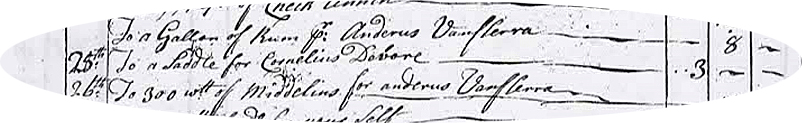 of Check Linnin
To a Gallon of Rum pr. Anderus Vanflerra — 8 —
25th To a Saddle for Cornelius Dovore — 3 — —
26th To 300 wtt of Middelins for anderus Vanflerra
Self